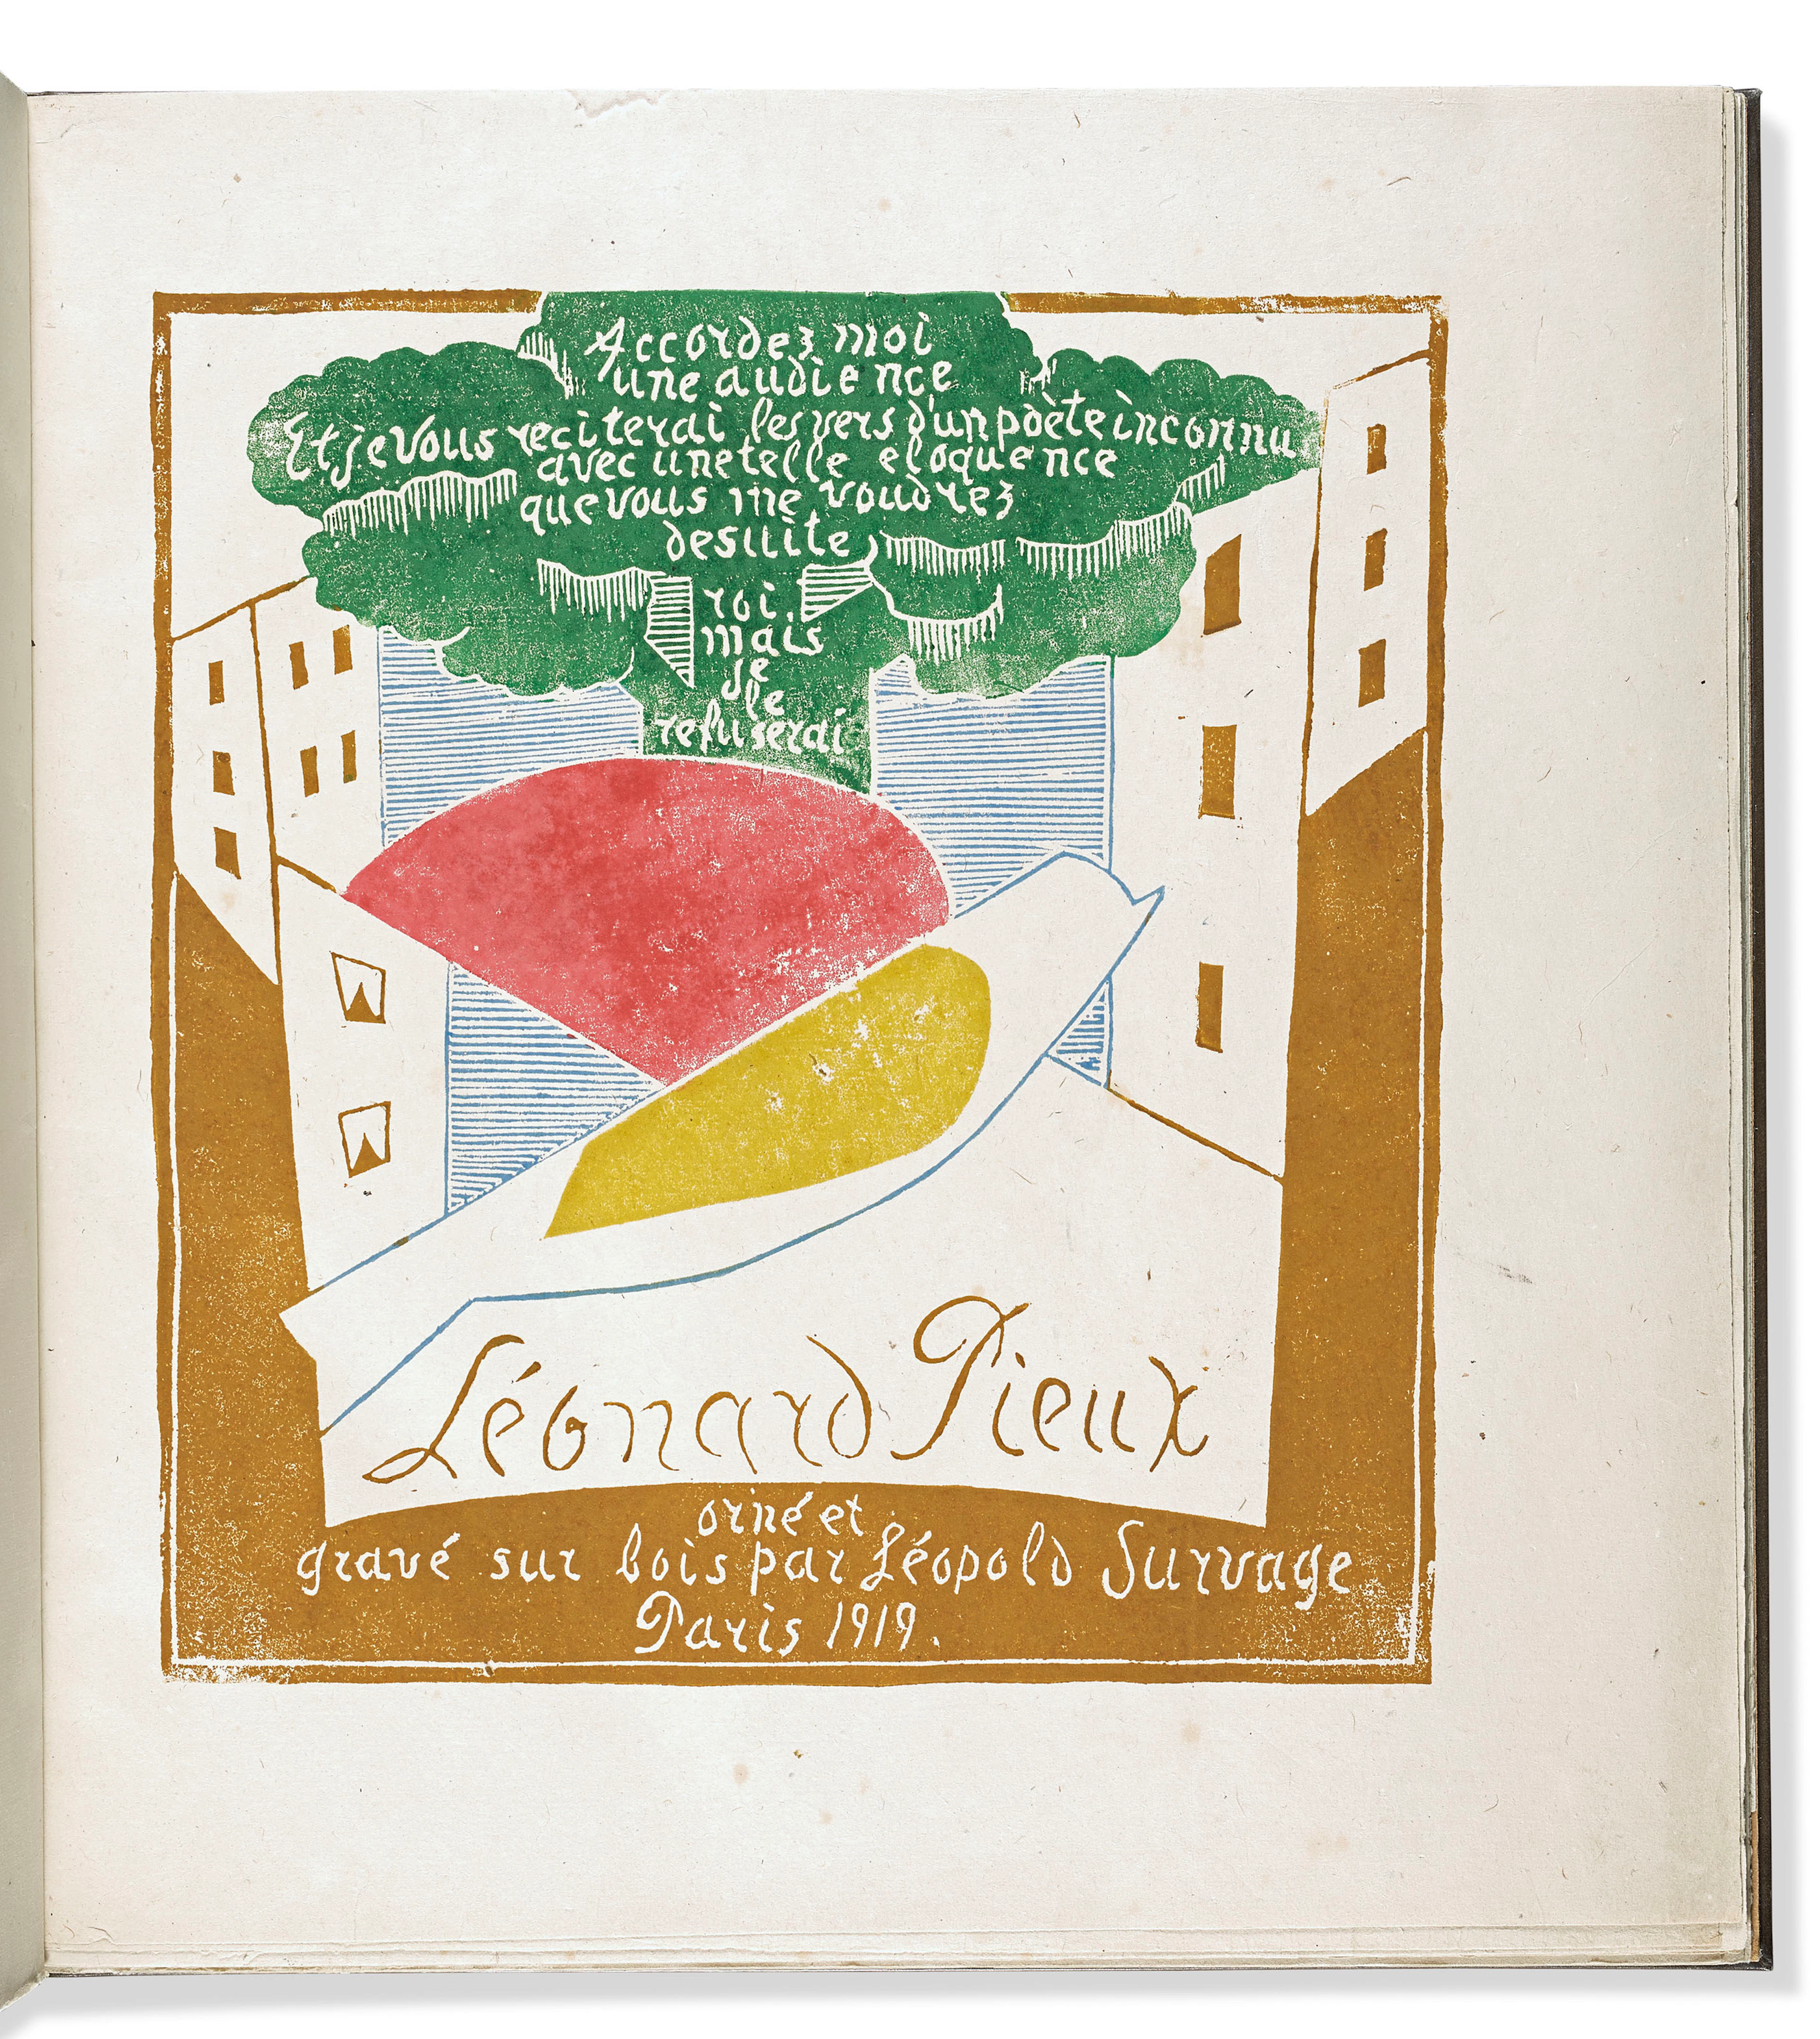 Accordez moi
une audience
Et je vous reciterai les vers d'un poète inconnu
avec une telle eloquence
que vous me voudrez
desuite
roi,
mais
je
le
refuserai
Léonard Pieux
orné et
gravé sur bois par Léopold Survage
Paris 1919.